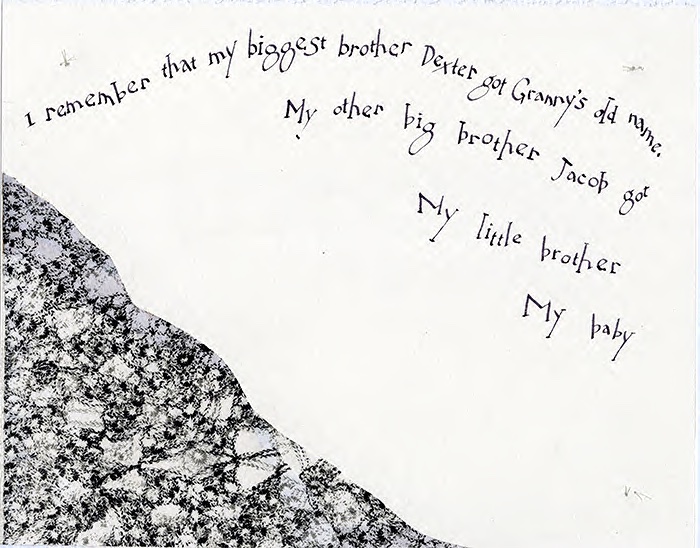 I remember that my biggest brother Dexter got Granny's old name.
My other big brother Jacob got
My little brother
My baby